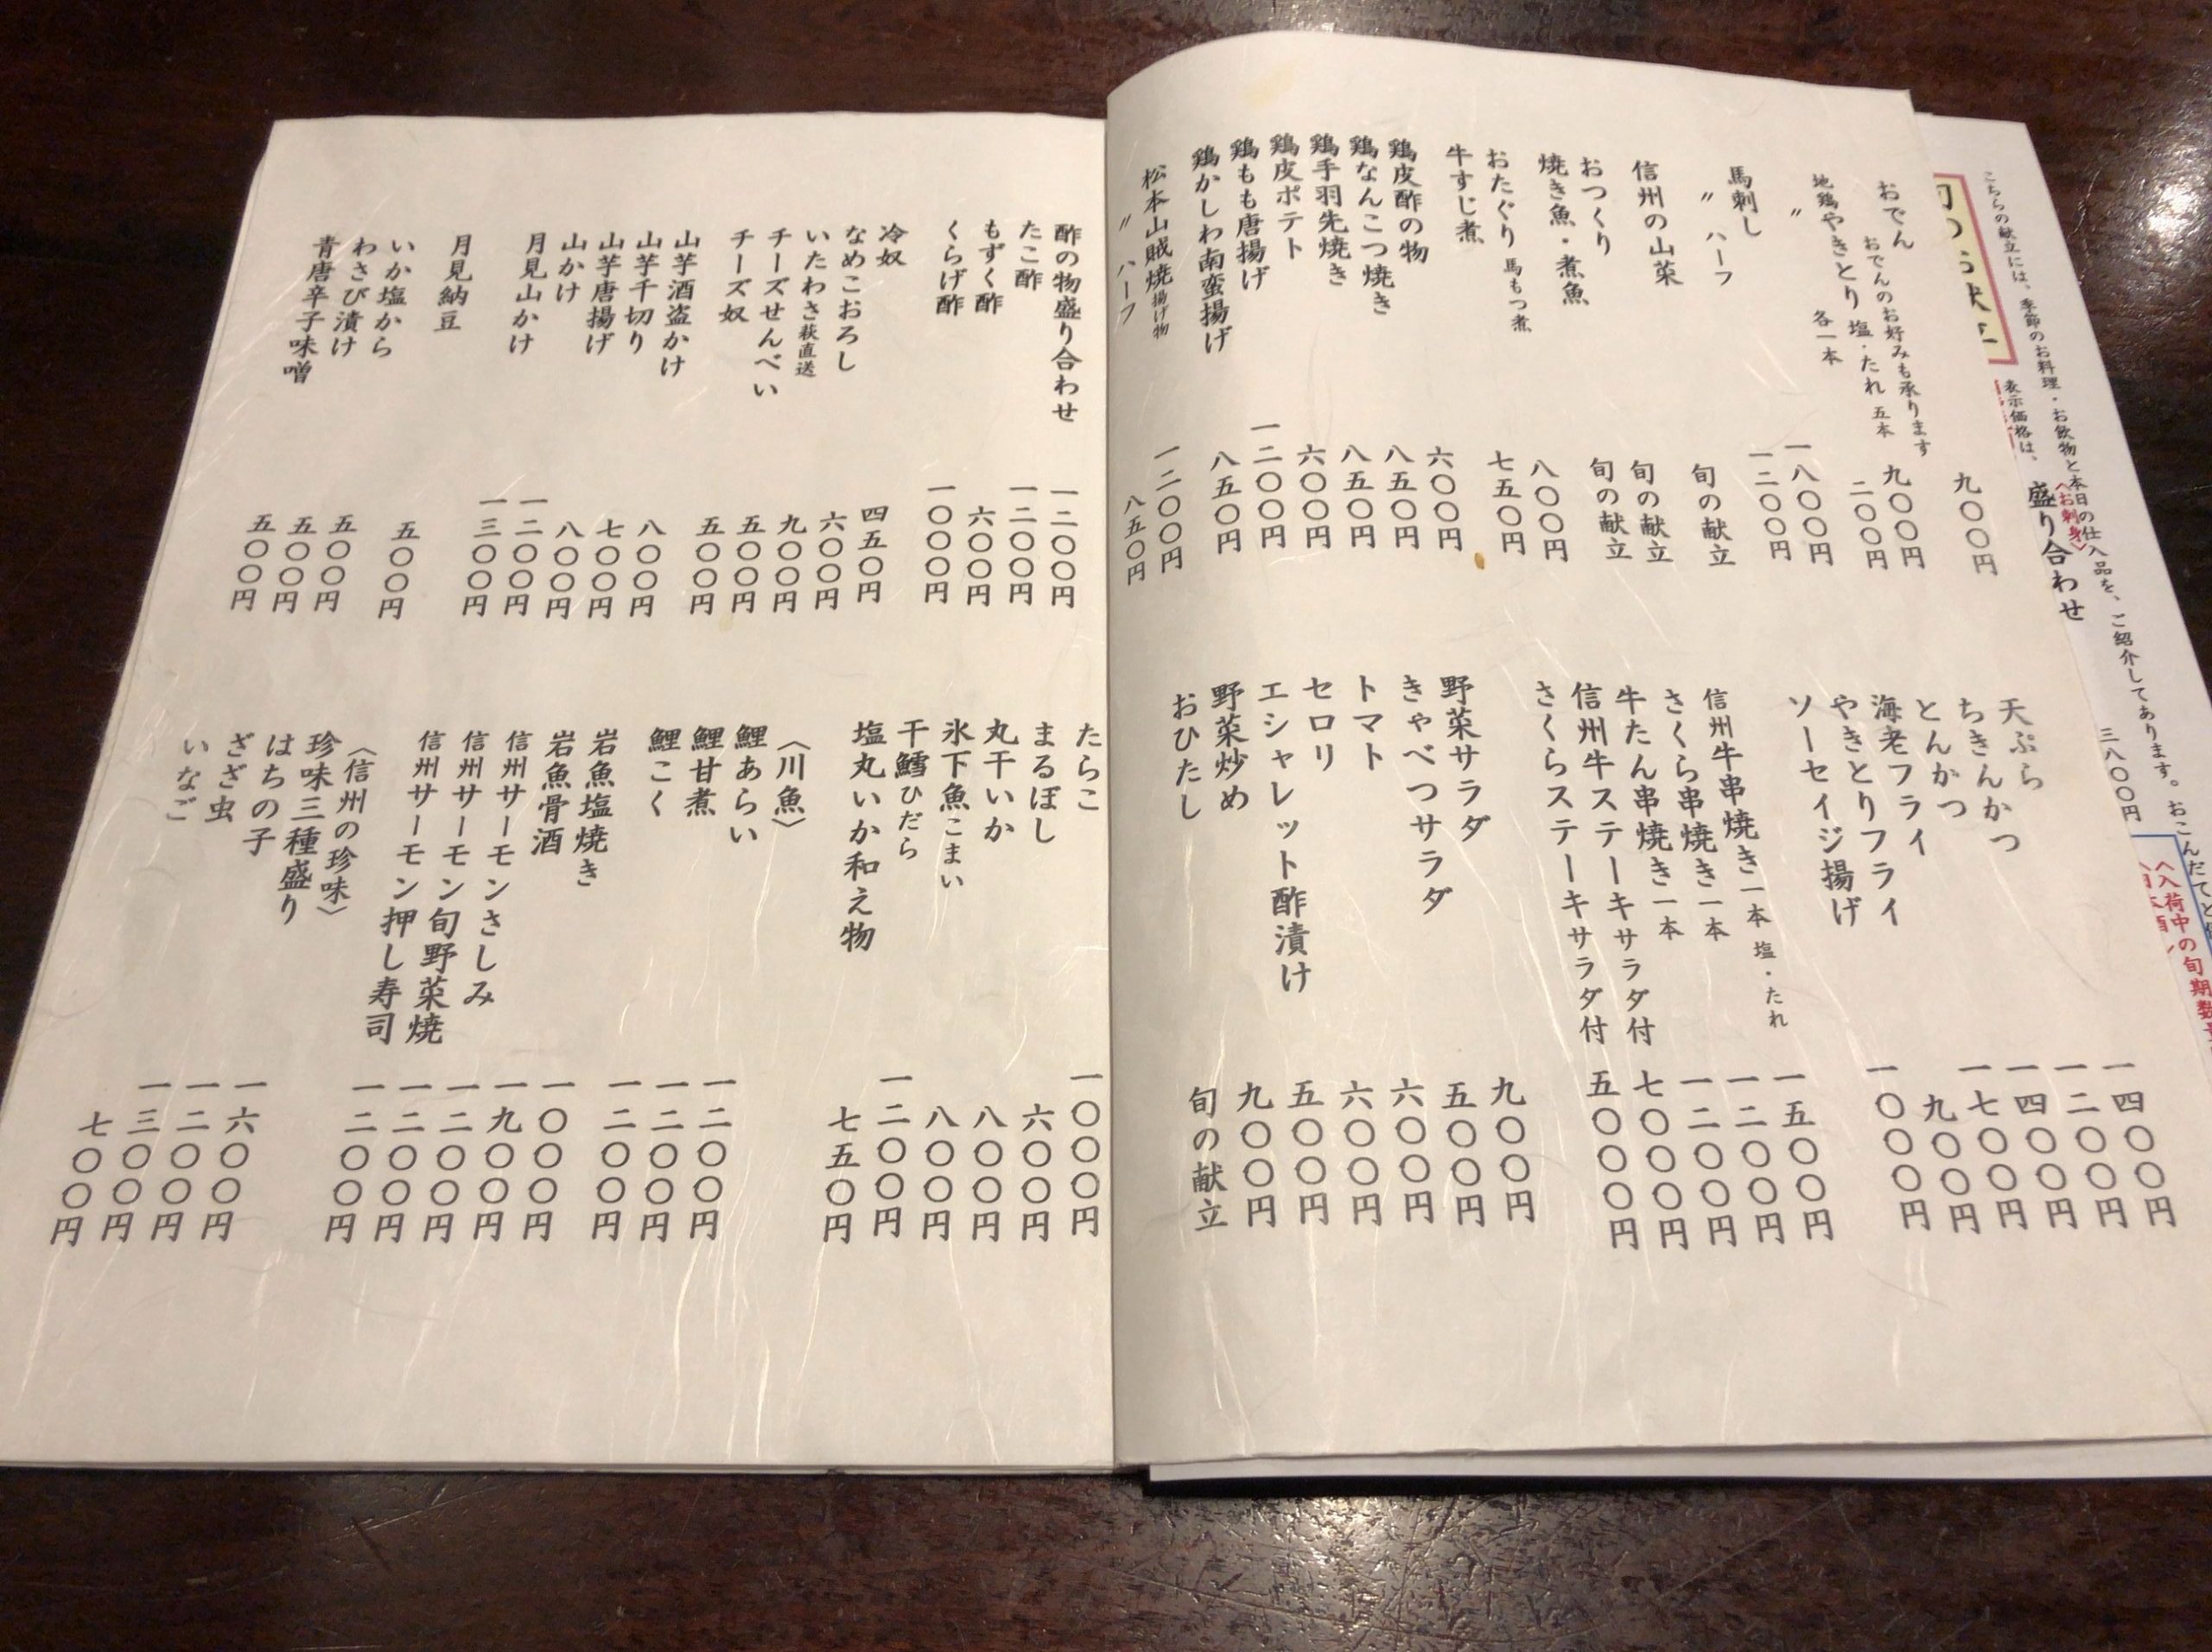 こちらの献立には、季節のお料理・お飲物と本日の仕入品を、ご紹介してあります。おこんだてと
表示価格は、
〈入荷中の旬期数
〈お刺身〉
盛り合わせ 三八〇〇円
おでん 九〇〇円
おでんのお好みも承ります
地鶏やきとり 塩・たれ 五本 九〇〇円
〃 各一本 二〇〇円
馬刺し 一八〇〇円
〃 ハーフ 一二〇〇円
信州の山菜 旬の献立
おつくり 旬の献立
焼き魚・煮魚 旬の献立
おたぐり 馬もつ煮 八〇〇円
牛すじ煮 七五〇円
鶏皮酢の物 六〇〇円
鶏なんこつ焼き 八五〇円
鶏手羽先焼き 八五〇円
鶏皮ポテト 六〇〇円
鶏もも唐揚げ 一二〇〇円
鶏かしわ南蛮揚げ 八五〇円
松本山賊焼 揚げ物 一二〇〇円
〃 ハーフ 八五〇円
天ぷら 一四〇〇円
ちきんかつ 一二〇〇円
とんかつ 一四〇〇円
海老フライ 一七〇〇円
やきとりフライ 九〇〇円
ソーセイジ揚げ 一〇〇〇円
信州牛串焼き一本 塩・たれ 一五〇〇円
さくら串焼き一本 一二〇〇円
牛たん串焼き一本 一二〇〇円
信州牛ステーキサラダ付 七〇〇〇円
さくらステーキサラダ付 五〇〇〇円
野菜サラダ 九〇〇円
きゃべつサラダ 五〇〇円
トマト 六〇〇円
セロリ 六〇〇円
エシャレット酢漬け 五〇〇円
野菜炒め 九〇〇円
おひたし 旬の献立
酢の物盛り合わせ 一二〇〇円
たこ酢 一二〇〇円
もずく酢 六〇〇円
くらげ酢 一〇〇〇円
冷奴 四五〇円
なめこおろし 六〇〇円
いたわさ 萩直送 九〇〇円
チーズせんべい 五〇〇円
チーズ奴 五〇〇円
山芋酒盗かけ 八〇〇円
山芋千切り 七〇〇円
山芋唐揚げ 八〇〇円
山かけ 一二〇〇円
月見山かけ 一三〇〇円
月見納豆 五〇〇円
いか塩から 五〇〇円
わさび漬け 五〇〇円
青唐辛子味噌 五〇〇円
たらこ 一〇〇〇円
まるぼし 六〇〇円
丸干いか 八〇〇円
氷下魚こまい 八〇〇円
干鱈ひだら 一二〇〇円
塩丸いか和え物 七五〇円
〈川魚〉
鯉あらい 一二〇〇円
鯉甘煮 一二〇〇円
鯉こく 一二〇〇円
岩魚塩焼き 一〇〇〇円
岩魚骨酒 一九〇〇円
信州サーモンさしみ 一二〇〇円
信州サーモン旬野菜焼 一二〇〇円
信州サーモン押し寿司 一二〇〇円
〈信州の珍味〉
珍味三種盛り 一六〇〇円
はちの子 一二〇〇円
ざざ虫 一三〇〇円
いなご 七〇〇円